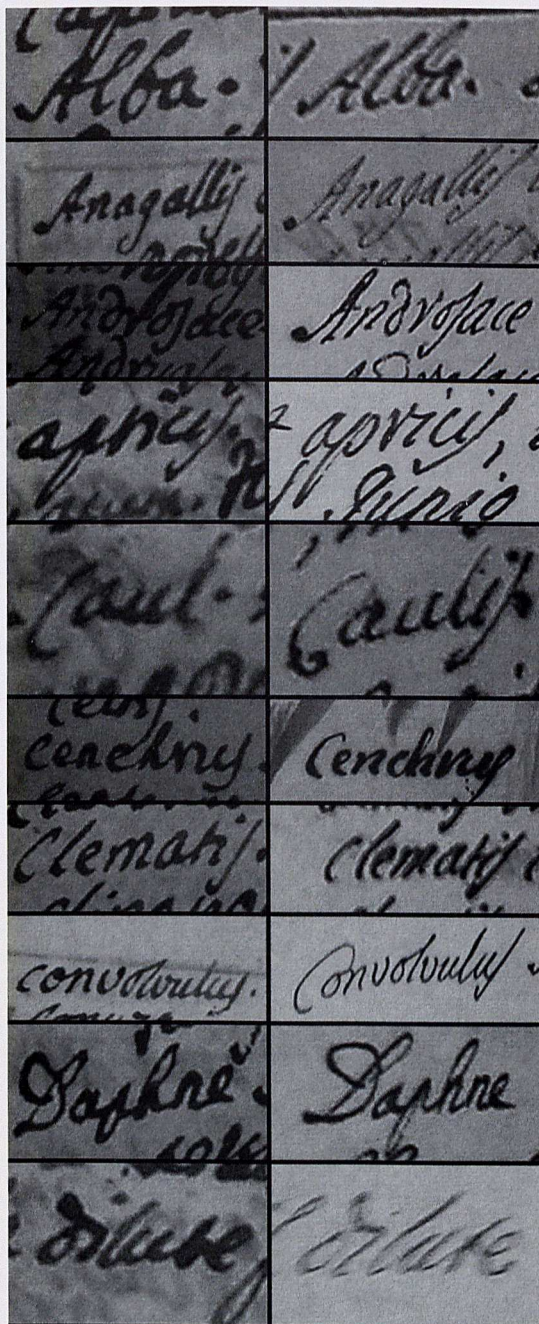 Alba. Alba.
Anagallis Anagallis
Androsace Androsace
apricis. apricis,
Junio
Caul. Caulis
Cenchrus Cenchrus
Clematis. Clematis
convolvulus. Convolvulus
Daphne Daphne
dilute dilute